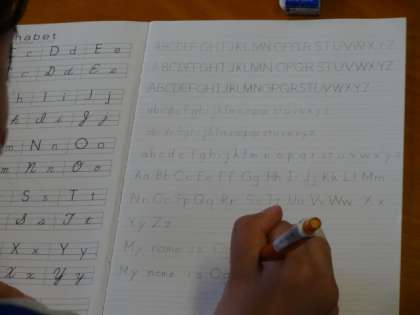 habet
c D d E e
c D d E e
h I i J j
h I i J j
m N n O o
m N n O o
S s T t
S s T t
X x Y y
X x Y y
ABCDEFGHIJKLMNOPQRSTUVWXYZ
ABCDEFGHIJKLMNOPQRSTUVWXYZ
ABCDEFGHIJKLMNOPQRSTUVWXYZ
abcdefghijklmnopqrstuvwxyz
abcdefghijklmnopqrstuvwxyz
abcdefghijklmnopqrstuvwxyz
Aa Bb Cc Ee Ff Gg Hh Ii Jj Kk Ll Mm
Nn Oo Pp Qq Rr Ss Tt Uu Vv Ww Xx
Yy Zz
My name is
My name is